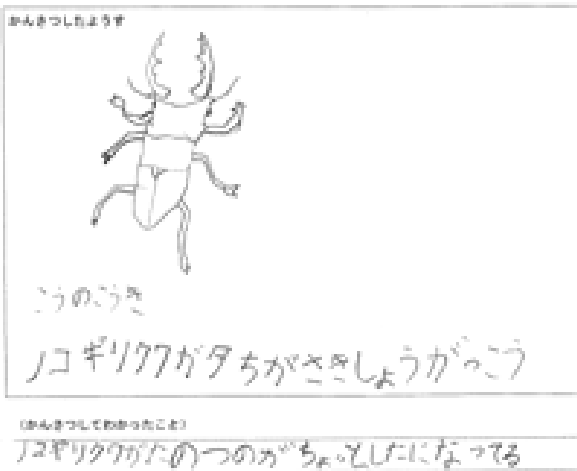 かんさつしたようす
こうのこうき
ノコギリクワガタちがさきしょうがっこう
(かんさつしてわかったこと)
ノコギリクワがたのつのがちょっとしたになってる